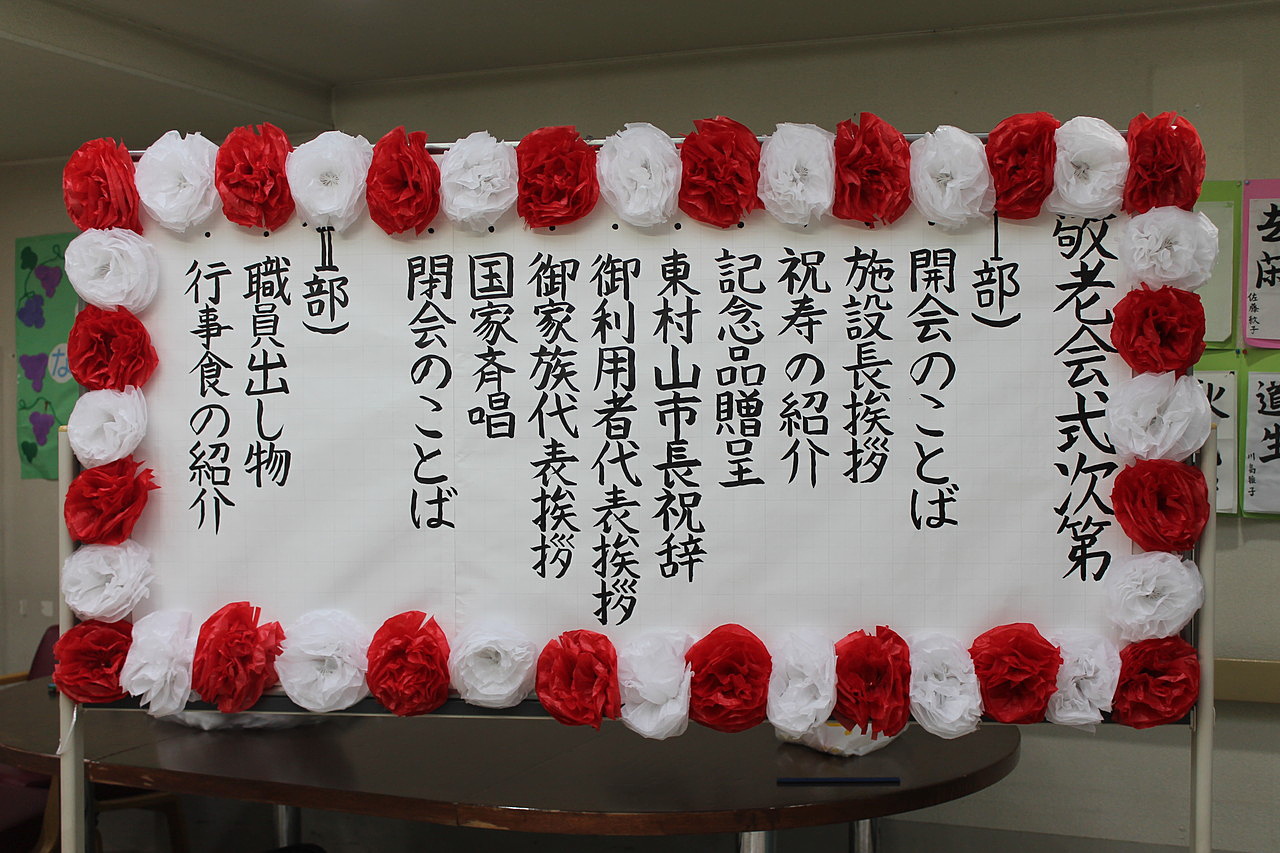 敬老会式次第
Ⅰ部)
・開会のことば
・施設長挨拶
・祝寿の紹介
・記念品贈呈
・東村山市長祝辞
・御利用者代表挨拶
・御家族代表挨拶
・国家斉唱
・閉会のことば
Ⅱ部)
・職員出し物
・行事食の紹介
道生
な